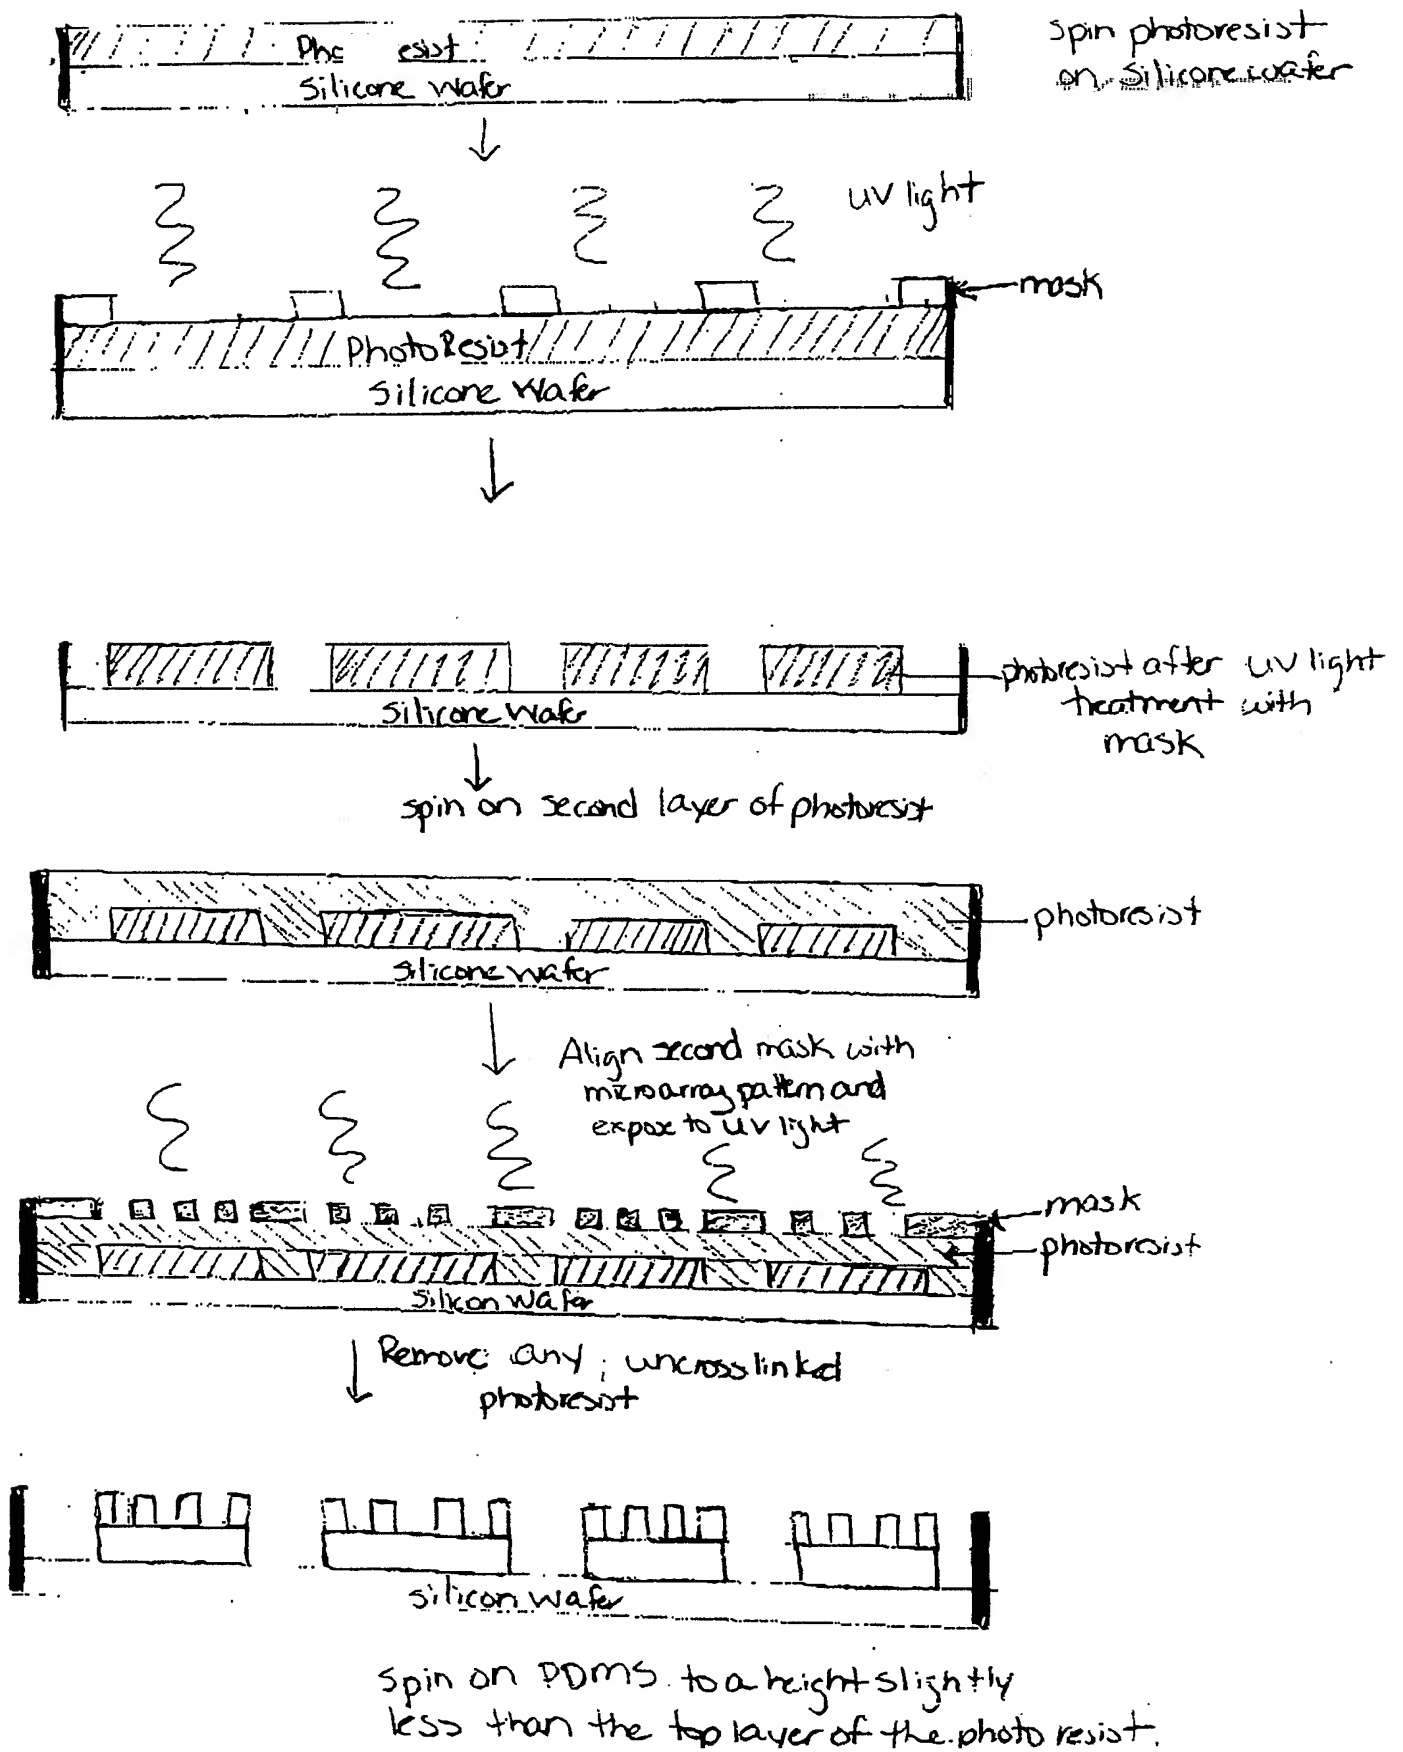 Pho esist
Silicone Wafer
spin photoresist
on silicone wafer
uv light
mask
PhotoResist
Silicone Wafer
photoresist after uv light
treatment with
mask
Silicone Wafer
spin on second layer of photoresist
photoresist
silicone wafer
Align second mask with
microarray pattern and
expose to uv light
mask
photoresist
Silicon Wafer
Remove any uncrosslinked
photoresist
silicon wafer
spin on PDMS to a height slightly
less than the top layer of the photo resist.